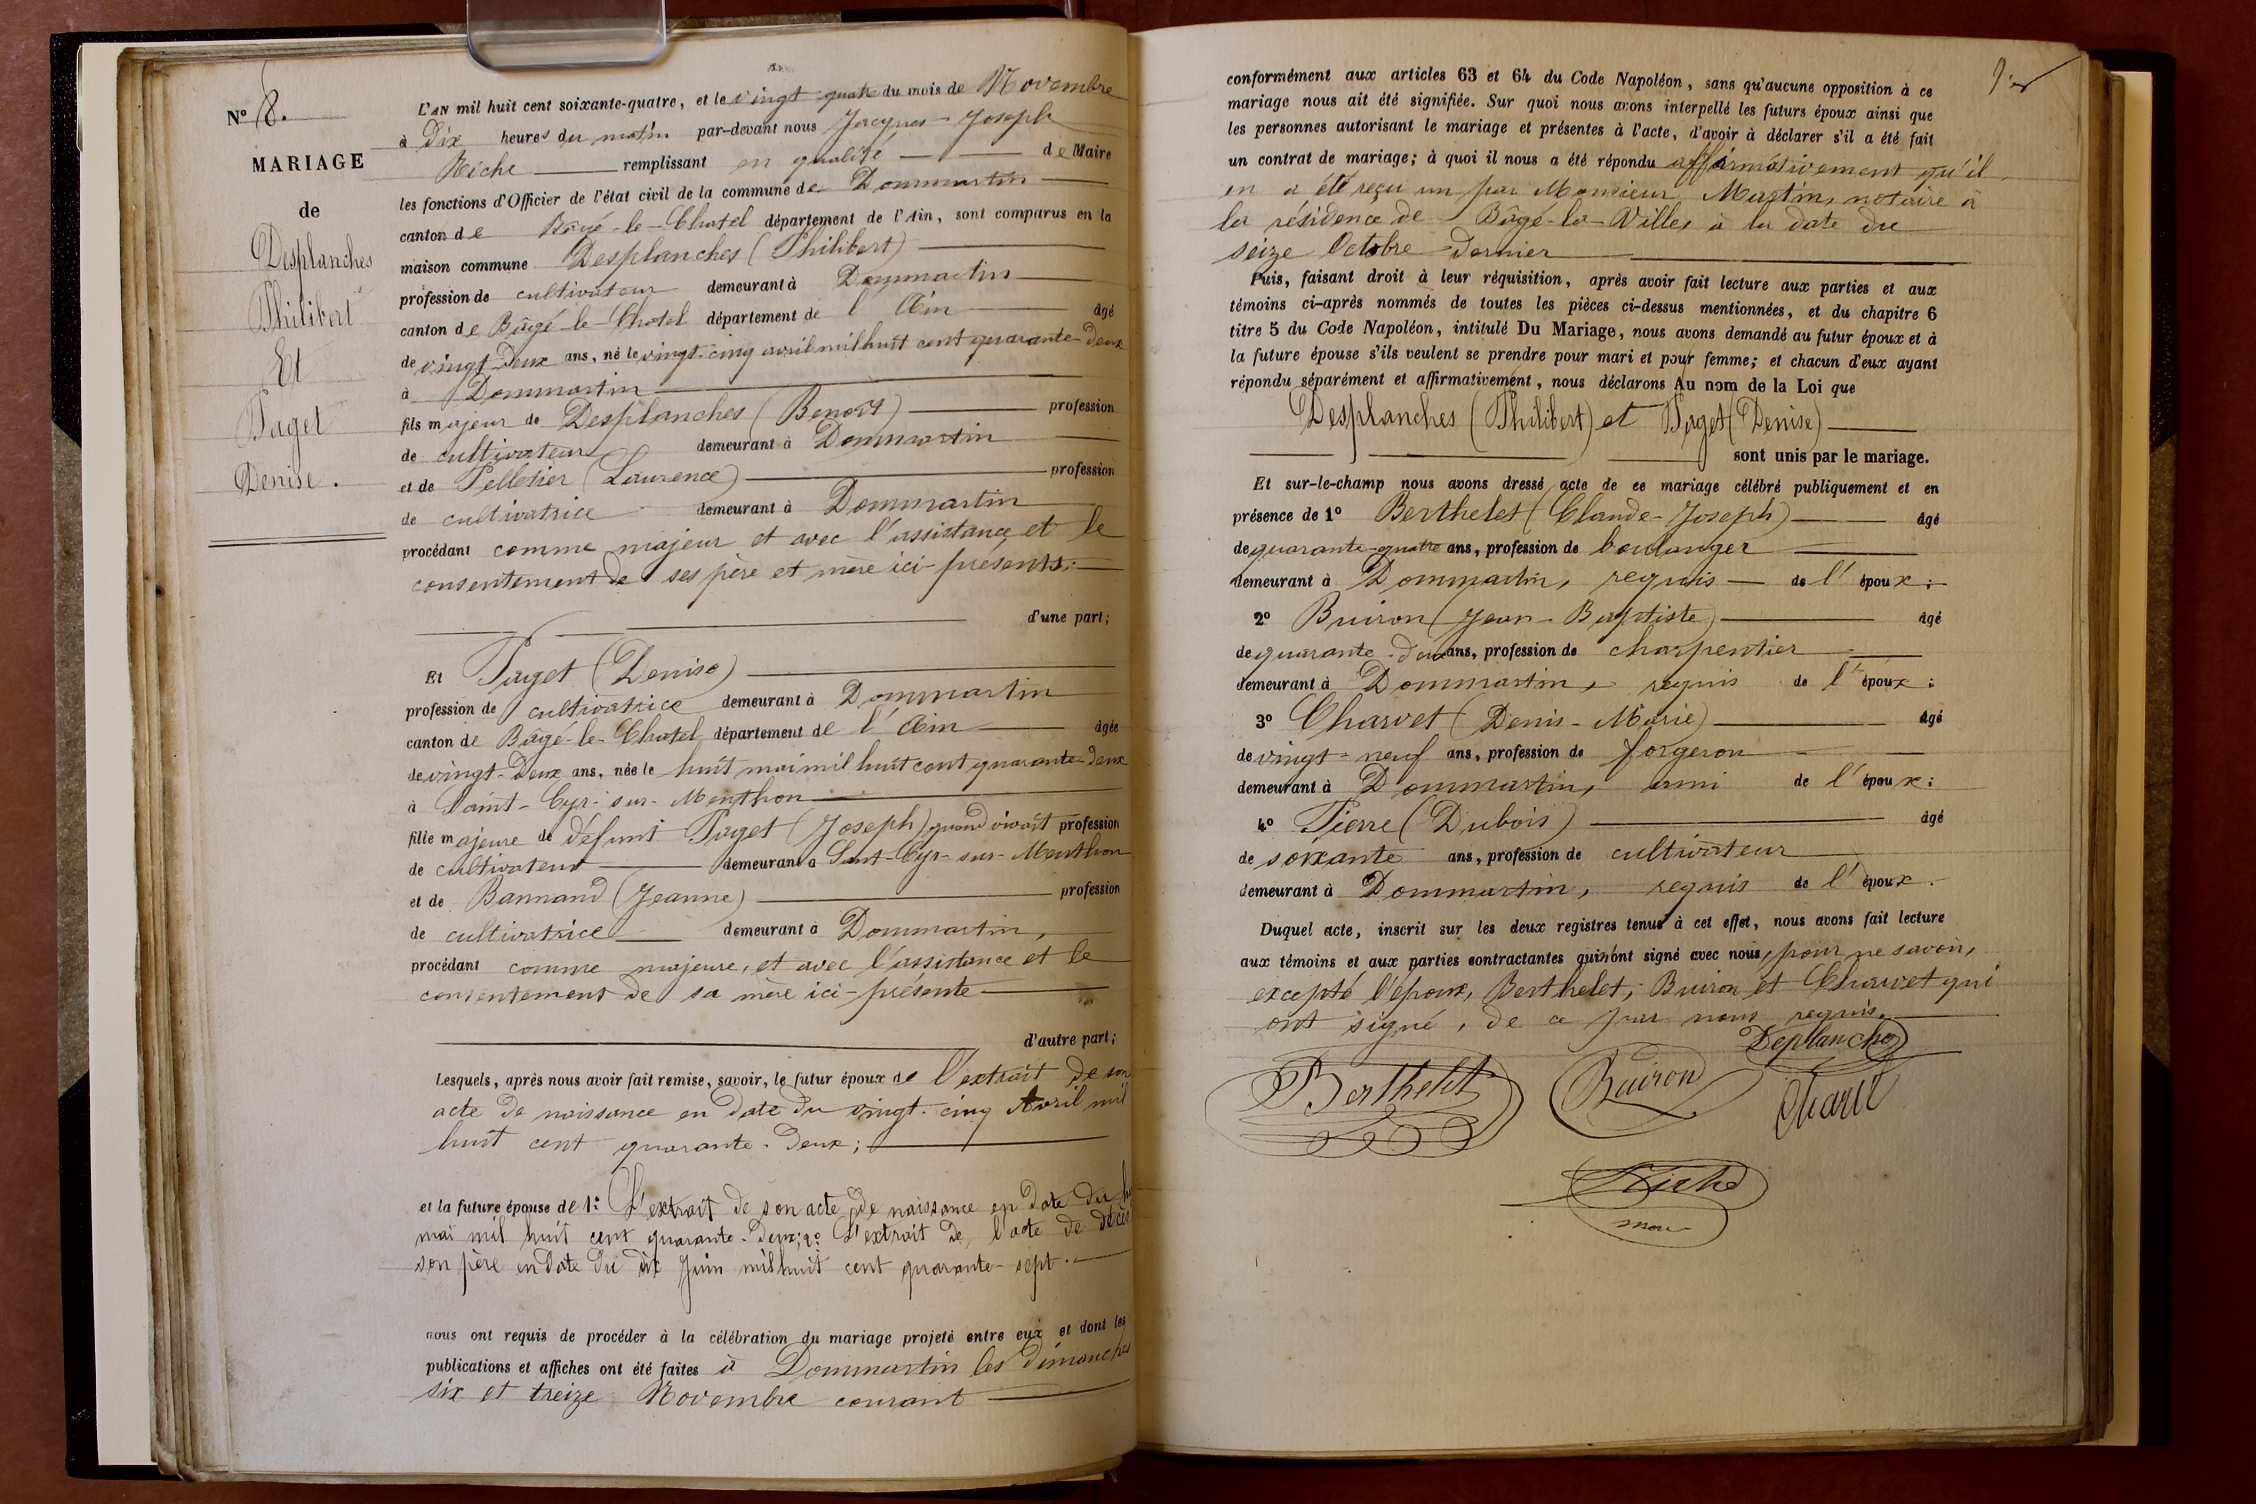 N° 8.
MARIAGE
de
Desplanches
Philibert
Et
Paget
Denise.
L'AN mil huit cent soixante-quatre, et le vingt-quatre du mois de Novembre
à Dix heures du matin par-devant nous Jacques-Joseph
Riche remplissant en qualité de Maire
les fonctions d'Officier de l'état civil de la commune de Dommartin
canton de Bâgé-le-Chatel département de l'Ain, sont comparus en la
maison commune Desplanches (Philibert)
profession de cultivateur demeurant à Dommartin
canton de Bâgé-le-Chatel département de l'Ain âgé
de vingt-deux ans, né le vingt-cinq avril mil huit cent quarante-deux
à Dommartin
fils majeur de Desplanches (Benoît) profession
de cultivateur demeurant à Dommartin
et de Pelletier (Laurence) profession
de cultivatrice demeurant à Dommartin
procédant comme majeur et avec l'assistance et le
consentement de ses père et mère ici présents.
d'une part;
Et Paget (Denise)
profession de cultivatrice demeurant à Dommartin
canton de Bâgé-le-Chatel département de l'Ain âgée
de vingt-deux ans, née le huit mai mil huit cent quarante-deux
à Saint-Cyr-sur-Menthon
fille majeure de défunt Paget (Joseph) quand vivait profession
de cultivateur demeurant à Saint-Cyr-sur-Menthon
et de Bannand (Jeanne) profession
de cultivatrice demeurant à Dommartin,
procédant comme majeure, et avec l'assistance et le
consentement de sa mère ici-présente
d'autre part;
Lesquels, après nous avoir fait remise, savoir, le futur époux de l'extrait de son
acte de naissance en date du vingt-cinq Avril mil
huit cent quarante-deux;
et la future épouse de 1° L'extrait de son acte de naissance en date du
mai mil huit cent quarante-deux; 2° L'extrait de l'acte de décès
son père en date du dix Juin mil huit cent quarante-sept.
nous ont requis de procéder à la célébration du mariage projeté entre eux et dont les
publications et affiches ont été faites à Dommartin les dimanches
six et treize Novembre courant
conformément aux articles 63 et 64 du Code Napoléon, sans qu'aucune opposition à ce
mariage nous ait été signifiée. Sur quoi nous avons interpellé les futurs époux ainsi que
les personnes autorisant le mariage et présentes à l'acte, d'avoir à déclarer s'il a été fait
un contrat de mariage; à quoi il nous a été répondu affirmativement qu'il
en a été reçu un par Monsieur Martin, notaire à
la résidence de Bâgé-la-Ville, à la date du
seize Octobre dernier
Puis, faisant droit à leur réquisition, après avoir fait lecture aux parties et aux
témoins ci-après nommés de toutes les pièces ci-dessus mentionnées, et du chapitre 6
titre 5 du Code Napoléon, intitulé Du Mariage, nous avons demandé au futur époux et à
la future épouse s'ils veulent se prendre pour mari et pour femme; et chacun d'eux ayant
répondu séparément et affirmativement, nous déclarons Au nom de la Loi que
Desplanches (Philibert) et Paget (Denise)
sont unis par le mariage.
Et sur-le-champ nous avons dressé acte de ce mariage célébré publiquement et en
présence de 1° Berthelet (Claude-Joseph) âgé
de quarante-quatre ans, profession de boulanger
demeurant à Dommartin, requis de l'époux:
2° Buiron (Jean-Baptiste) âgé
de quarante-deux ans, profession de charpentier
demeurant à Dommartin, requis de l'époux:
3° Charvet (Denis-Marie) âgé
de vingt-neuf ans, profession de forgeron
demeurant à Dommartin, ami de l'époux:
4° Pierre (Dubois) âgé
de soixante ans, profession de cultivateur
demeurant à Dommartin, requis de l'époux.
Duquel acte, inscrit sur les deux registres tenus à cet effet, nous avons fait lecture
aux témoins et aux parties contractantes qui n'ont signé avec nous, pour ne savoir,
excepté l'époux, Berthelet, Buiron et Charvet qui
ont signé, de ce par nous requis.
Deplanche
Berthelet
Buiron
Charvet
Riche